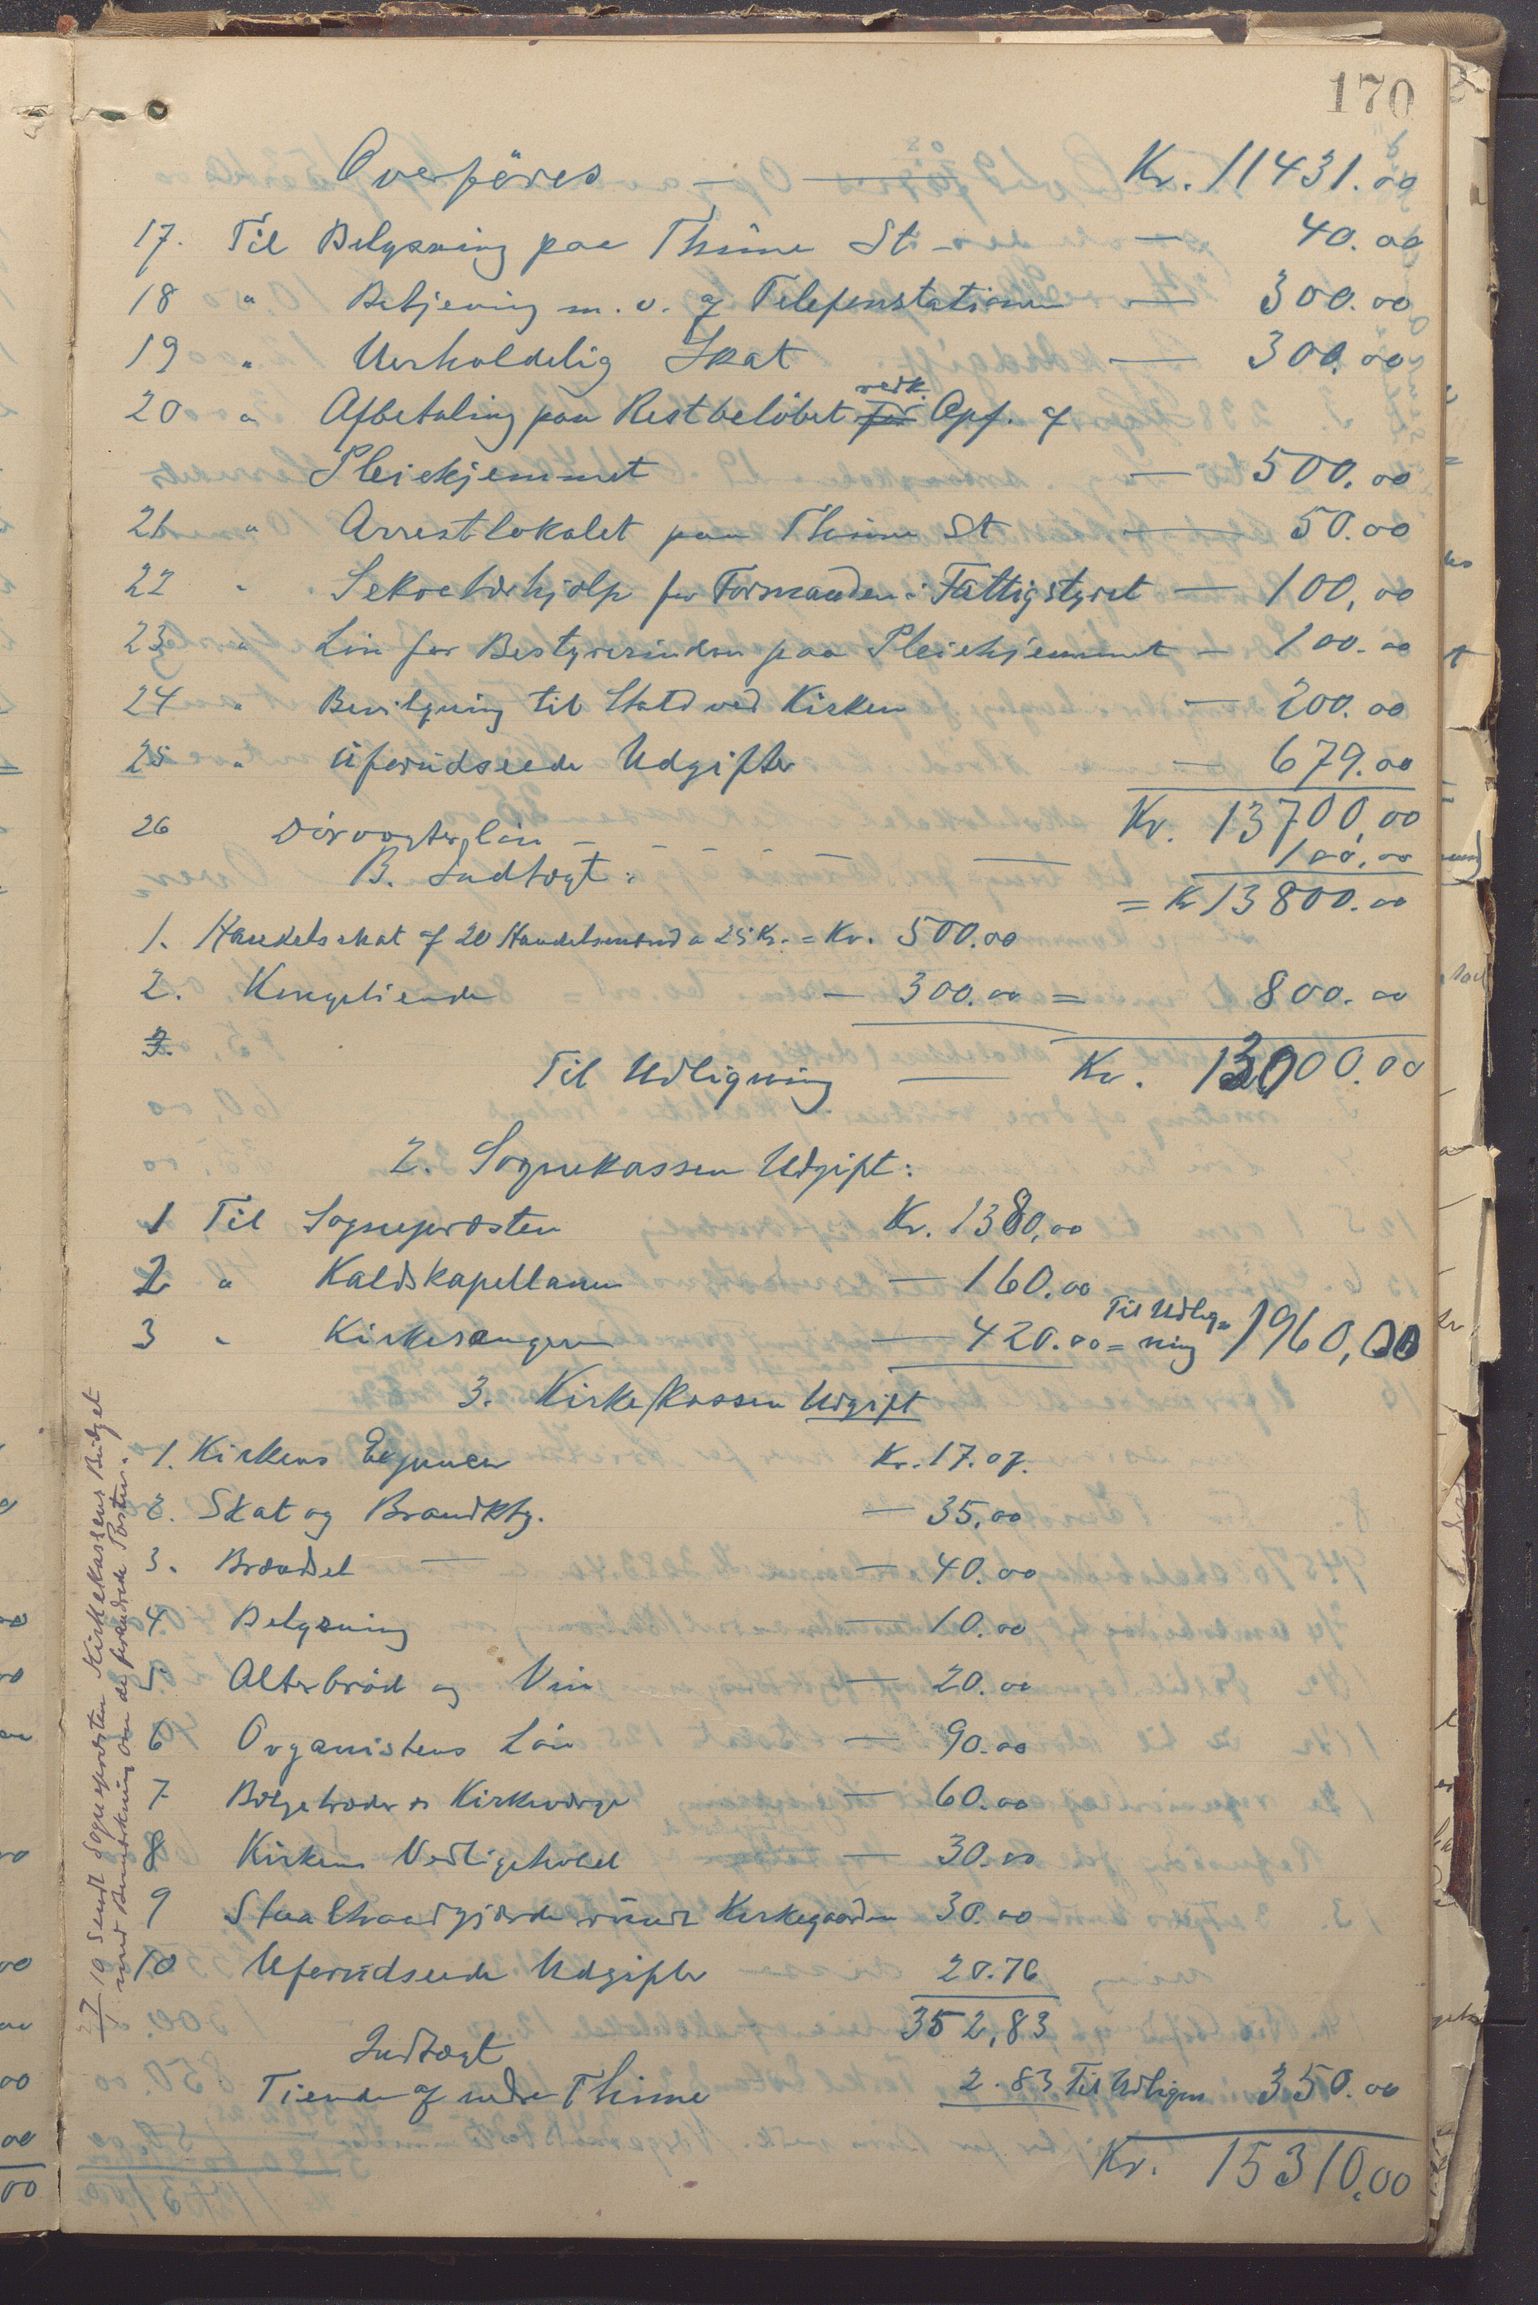 170
Overföres — — Kr. 11431.00
17. Til Belysning paa Thime St — — 40.00
18 " Betjening m. v. af Telefonstationen — 300.00
19 " Uerholdelig Skat — 300.00
20 " Afbetaling paa Restbelöbet for vedk. Opf. af
Pleiehjemmet — 500.00
21 " Arrestlokalet paa Thime St — 50.00
22 " Sekretærhjælp for Formanden i Fattigstyret — 100,00
23 " Lön for Bestyrerinden paa Pleiehjemmet — 100.00
24 " Bevilgning til Stald ved Kirken — 200.00
25 " Uforudseede Udgifter — 679.00
Kr. 13700,00
26 Dörvogterlön — — — — — 100,00
B. Indtægt: = Kr 13800.00
1. Handelsskat af 20 Handelsmænd a 25 Kr. = Kr. 500.00
2. Kongetiende — 300.00 = 800.00
3.
Til Udligning — Kr. 13000.00
2. Sognekassen Udgift:
1 Til Sognepræsten Kr. 1380,00
2 " Kaldskapellanen — 160.00
3 " Kirkesangeren — 420.00 = Til Udligning 1960,00
3. Kirkekassen Udgift
1. Kirkens Expencer Kr. 17.07.
2. Skat og Brandktg. — 35.00
3. Brændsel — — 40.00
4. Belysning — 10.00
5. Alterbröd og Vin — 20.00
6 Organistens Lön — 90.00
7 Bælgetræder og Kirkeværge — 60.00
8 Kirkens Vedligehold — 30.00
9 Staaltraadgjærde rundt Kirkegaarden 30.00
10 Uforudseede Udgifter 20.76
352,83
Indtægt
Tiende af nedre Thime 2.83 Til Udlign 350.00
Kr. 15310,00
27/10 Sendt Sognepræsten Kirkekassens Budget
med Bemærkning om de forandrede Poster.